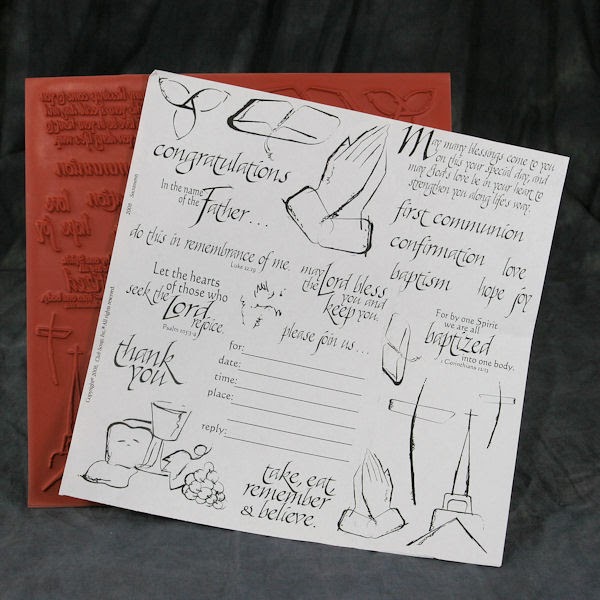 congratulations
May many blessings come to you
on this your special day, and
may God's love be in your heart to
strengthen you along life's way.
In the name
of the
Father...
first communion
confirmation
love
baptism
hope
joy
do this in remembrance of me.
Luke 22:19
Let the hearts
of those who
seek the Lord
rejoice.
may
the Lord bless
you and
keep you.
please join us...
For by one Spirit
we are all
baptized
into one body.
1 Corinthians 12:13
thank
you
for:
date:
time:
place:
reply:
take, eat,
remember
& believe.
2008
Sacrament
Copyright© 2008, Club Scrap, Inc.® All rights reserved.